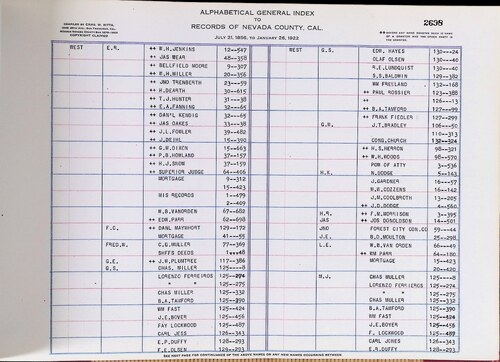 ALPHABETICAL GENERAL INDEX
TO
RECORDS OF NEVADA COUNTY, CAL.
JULY 21, 1856, TO JANUARY 26, 1922
COMPILED BY CHAS. W. KITTS
COPYRIGHT CLAIMED
2638
WEST E.R. ++ W.H.JENKINS 12--547
++ JAS WEAR 48--358
++ BELLFIELD MOORE 9--307
++ M.H.MILLER 20--356
++ JNO TRENBERTH 23--59
++ H.DEARTH 30--615
++ T.J.HUNTER 31--38
++ E.A.FANNING 32--65
++ DANL KENDIG 32--65
++ JAS OAKES 33--38
++ J.L.FOWLER 39--482
++ J.DEIHL 15--390
++ G.W.DIXON 15--663
++ P.B.HOWLAND 37--157
++ H.J.SNOW 37--159
++ SUPERIOR JUDGE 64--406
MORTGAGE 9--312
15--423
MIS RECORDS 1--479
2--409
W.B.VANORDEN 67--682
++ EDW.PARR 62--498
F.C. ++ DANL MAYNHORT 129--172
MORTGAGE 41--55
FRED.N. C.G.MULLER 77--369
SHFFS DEEDS 1--48
G.E. ++ J.W.PLUMTREE 117--386
G.S. CHAS. MILLER 125--8
LORENZO FERREIROS 125--274
" " 125--275
CHAS MILLER 125--332
B.A.TANFORD 125--390
WM FAST 125--424
J.E.BOYER 125--456
FAY LOCKWOOD 125--487
CARL JESS 126--343
E.P.DUFFY 128--293
F.E.OLSEN 129--293
WEST G.S. EDW. HAYES 130--24
OLAF OLSEN 130--40
R.E.LUNDQUIST 130--4C
S.S.BALDWIN 129--382
WM FREELAND 132--168
++ PAUL ROSSIER 123--388
++ 126--13
++ B.A.TANFORD 127--99
++ FRANK FIEDLER 127--299
G.W. J.T.BRADLEY 106--50
110--313
CONG.CHURCH 132--324
++ H.S.HERRON 98--321
++ W.H.WOODS 98--570
POW OF ATTY 3--536
H.K. N.DODGE 5--143
J.GARDNER 16--57
W.B.COZZENS 16--142
J.N.COOLBROTH 13--205
++ J.D.DODGE 4--560
H.R. ++ F.M.MORRISON 3--395
JAS ++ JOS DONALDSON 14--501
JNO FOREST CITY CON.CO 59--44
J.E. W.D.MOULTON 25--298
L.E. W.B.VAN ORDEN 66--49
++ WM PARR 64--180
MORTGAGE 15--423
20--420
M.J. CHAS MULLER 125--8
LORENZO FERREIROS 125--274
" " 125--275
CHAS MILLER 125--332
B.A.TANFORD 125--390
WM FAST 125--424
J.E.BOYER 125--456
F. LOCKWOOD 125--487
CARL JONES 126--343
E.P.DUFFY 128--293
SEE NEXT PAGE FOR CONTINUANCE OF THE ABOVE NAMES OR ANY NEW NAMES OCCURRING BETWEEN